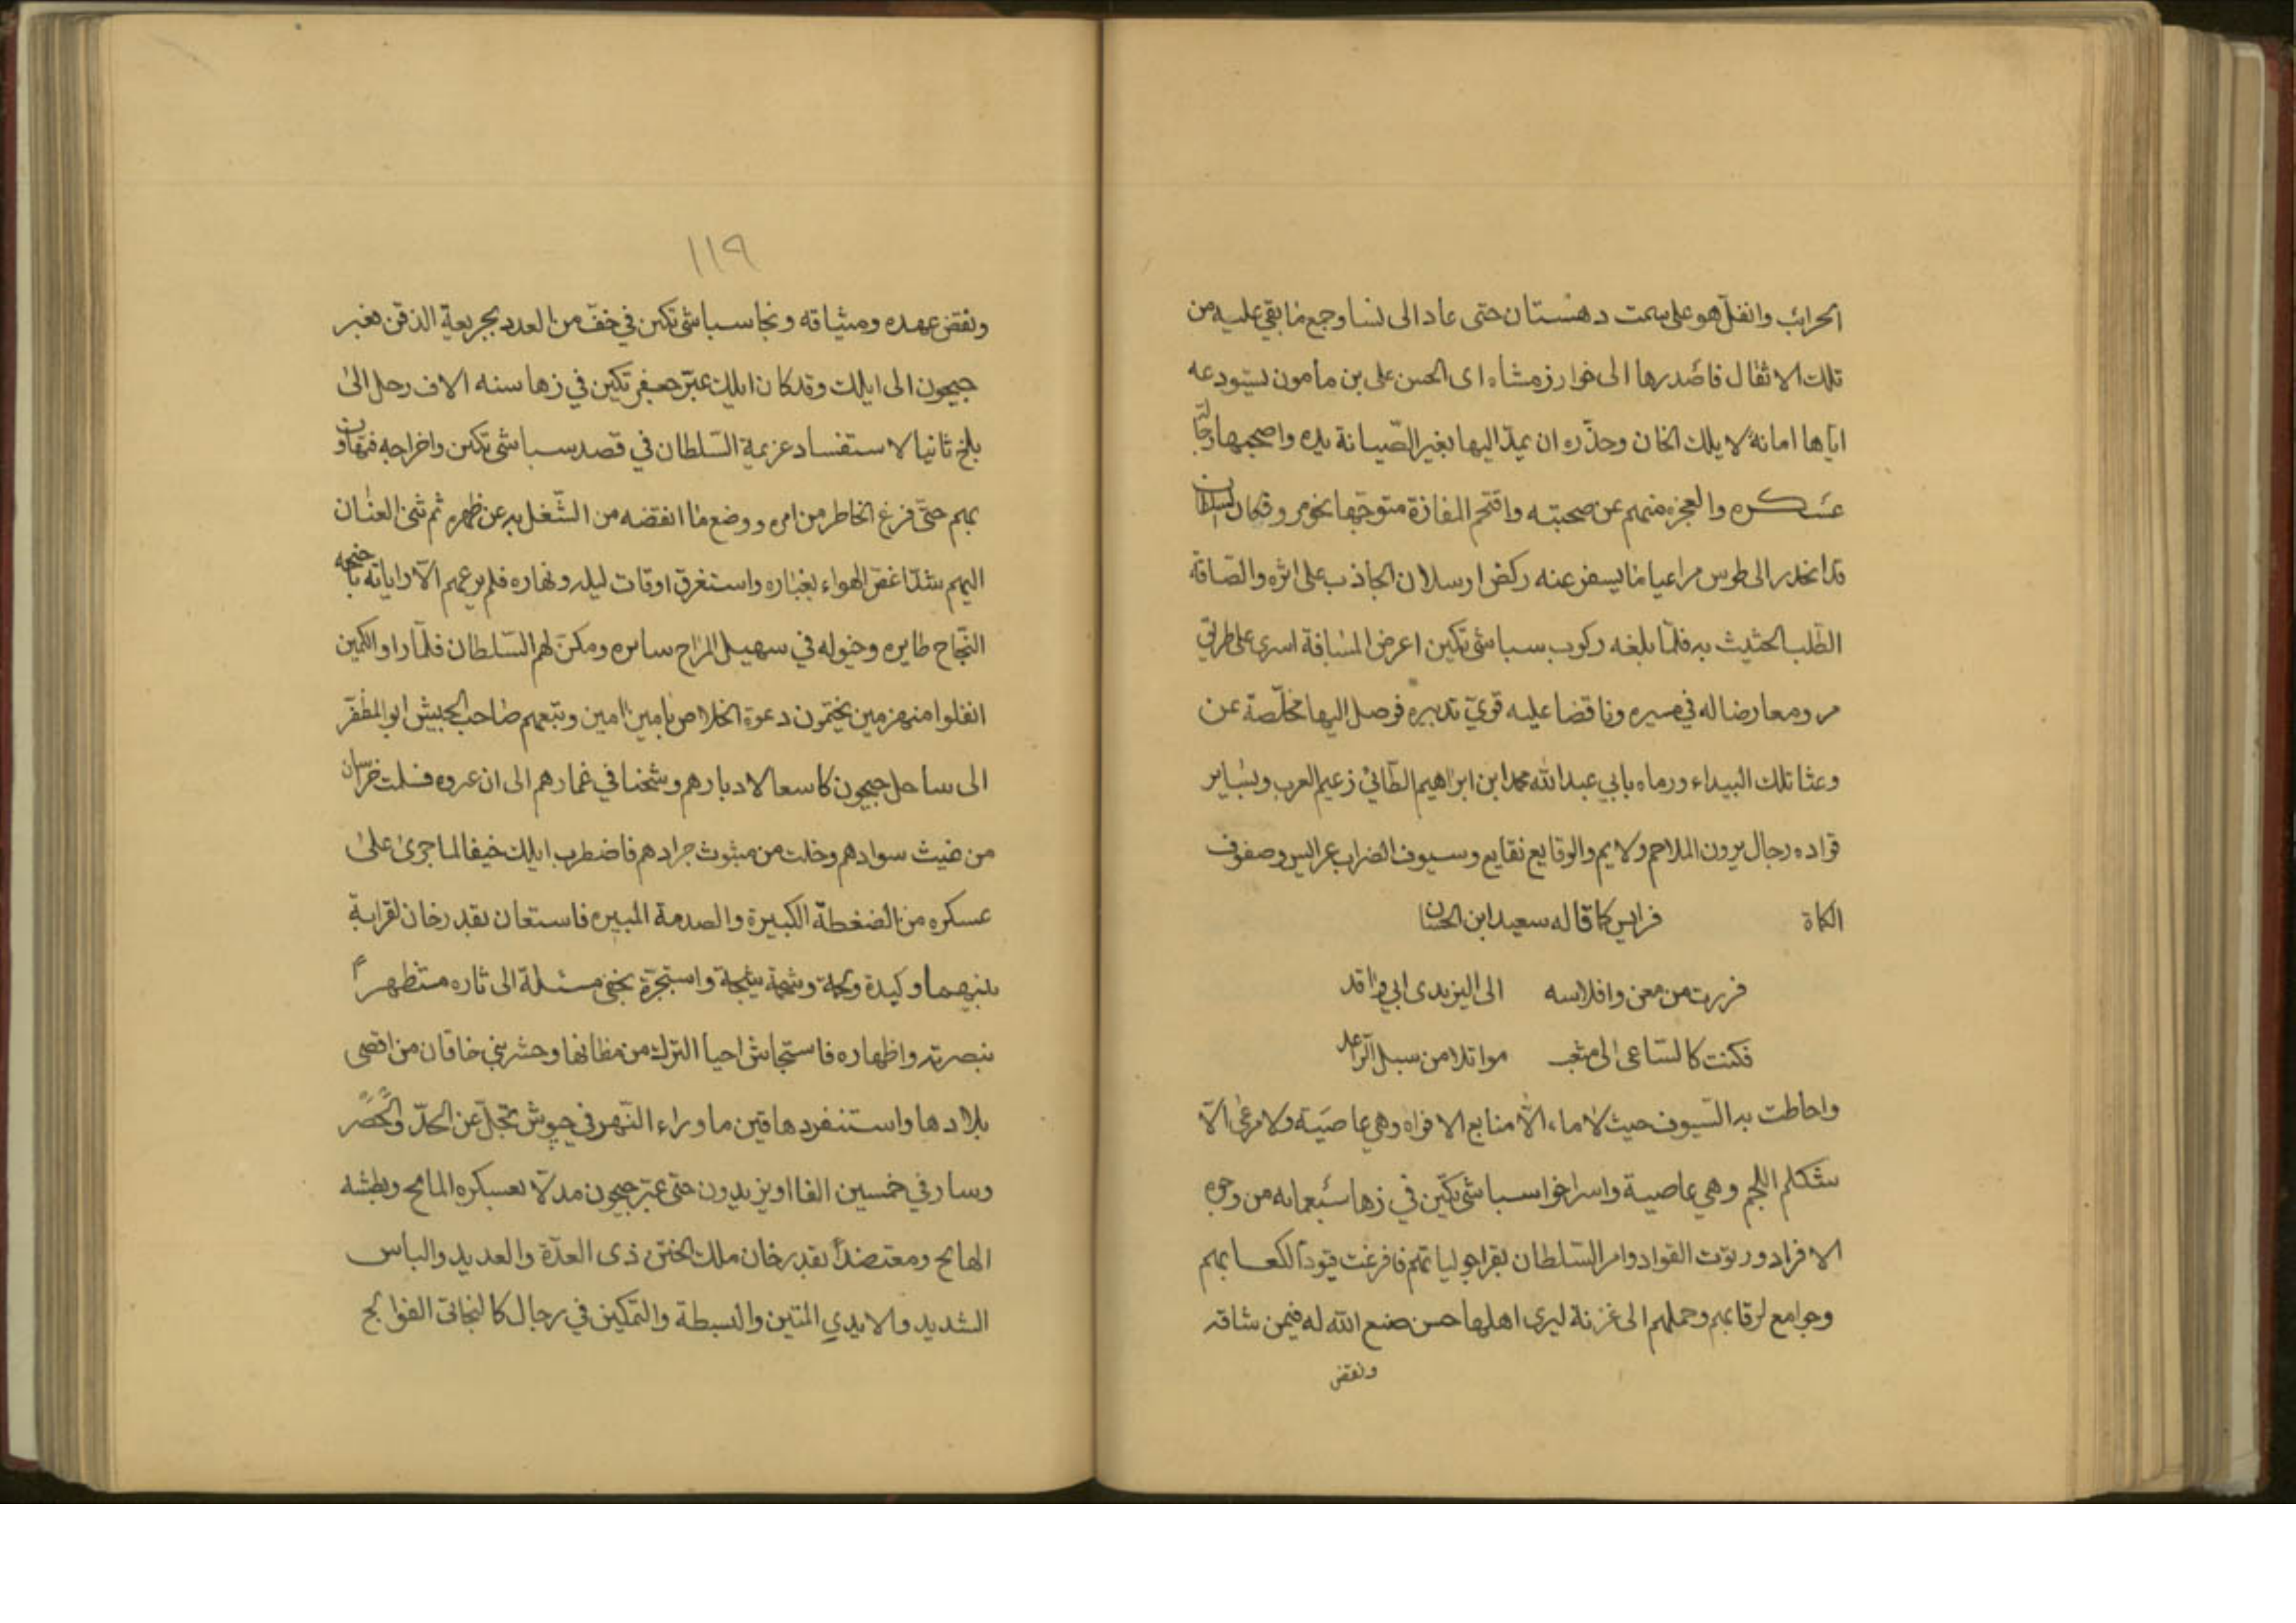 الحرائب وانفلّ هو على سمت دهستان حتى عاد الى نسا وجمع ما بقي عليه من
تلك الاثقال فاصدرها الى خوارزمشاه اى الحسن على بن مأمون يستودعه
اياها امانة لايلك الخان وحذّره ان يمدّ اليها بغير الصّيانة يده واصحبها رجّالة
عسكره والعجزه منهم عن صحبته واقتحم المفازة متوجّها نحو مرو وكان السلطان
قد انحدر الى طوس مراعيا ما يسفر عنه ركض ارسلان الجاذب على اثره والصّاقة
الطّلب الحثيث به فلمّا بلغه ركوب سباشى تكين اعرض المسافة اسرى على طريق
مرو معارضا له في مسيره وناقضا عليه قوىّ تدبيره فوصل اليها مخلّصة عن
وعثا تلك البيداء ورماه بابي عبدالله محمد ابن ابراهيم الطّائي زعيم العرب وبساير
قواده رجال يرون الملاحم ولايم والوقايع نقايع وسيوف الضراب عرايس وصفوف
الكماة فرايس كما قاله سعيد ابن الحسان
فررت من معن وافلاسه الى اليزيدى ابي واقد
فكنت كالسّاعى الى مثعب موائلا من سبل الرّاعد
واحاطت به السّيوف حيث لا ماء الّا منابع الافواه وهي عاصيّة ولا مرعى الّا
شكلم اللجم وهي عاصية واسر اخوا سباشى تكين في زها سبعمايه من وجوه
الافراد ورتوت القواد وامر السّلطان بقراجوليا تهم فافرغت قيودا لكعابهم
وجوامع لرقابهم وحملهم الى غزنة ليرى اهلها حسن صنع الله له فيمن شاقه
ونقض
١١٩
ونقض عهده وميثاقه ونجا سباشى تكين في خفّ من العدد بجريعة الذقن بغير
جيحون الى ايلك وقد كان ايلك عبّر جعفر تكين في زها سته الاف رجل الى
بلخ ثانيا لاستفساد عزيمة السّلطان في قصد سباشى تكين واخراجه فتهاون
بهم حتّى فرغ الخاطر من امره ووضع ما انقضه من الشّغل به عن ظهره ثم ثنى العنان
اليهم بشدّا غصّ الهواء بغباره واستغرق اوقات ليله ونهاره فلم يرعهم الّا راياته باجنحه
النّجاح طايره وخيوله في سهيل المراح سايره ومكن لهم السّلطان فلمّا راوا الكمين
انفلوا منهزمين يختمون دعوة الخلاص بامين امين وتبعهم صاحب الجيش ابو المظفّر
الى ساحل جيحون كاسعا لادبارهم وشخنا في غمارهم الى ان عبروه فسلت خراسان
من ضيث سوادهم وخلت من مبثوث جرادهم فاضطرب ايلك خيفا لما جرى على
عسكره من الضغطة الكبيرة والصدمة المبيره فاستعان بقدرخان لقرابة
بينهما وكيدة ولحمة وشيجة واستجرّة يجنى مسئلة الى ثاره مستظهرا
بنصرته واظهاره فاستجاش احيا الترك من مظانها وحشر بني خاقان من اقصى
بلادها واستنفر دهاقين ماوراء النّهر في جيوش تجلّ عن الحدّ والحصر
وسار في خمسين الفا او يزيدون حتى عبر جيحون مدلّا بعسكره المايج وبطشه
الهايج ومعتضداً بقدرخان ملك الختن ذى العدّة والعديد والباس
الشديد والايدي المتين والبسطة والتمكين في رجال كالنجاتى الفوالج